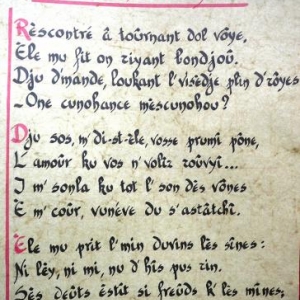 Rèscontré â toûrnant dol vôye,
Ele mu fit on riyant bondjoû.
Dju d'mande, loukant l'visèdje plin d'rôyes
—One cunohance mèscunohou?
Dju sos, m'di-st-èle, vosse prumî pône,
L'amoûr ku vos n'volîz roûvyî...
I m'sonla ku tot l'son dès vônes
È m'coûr, vunéve du s'astâtchî.
Ele mu prit l'min duvins lès sînes:
Ni lèy, ni mi, nu d'his pus rin.
Sès deûts èstît si freûds k'lès mines;